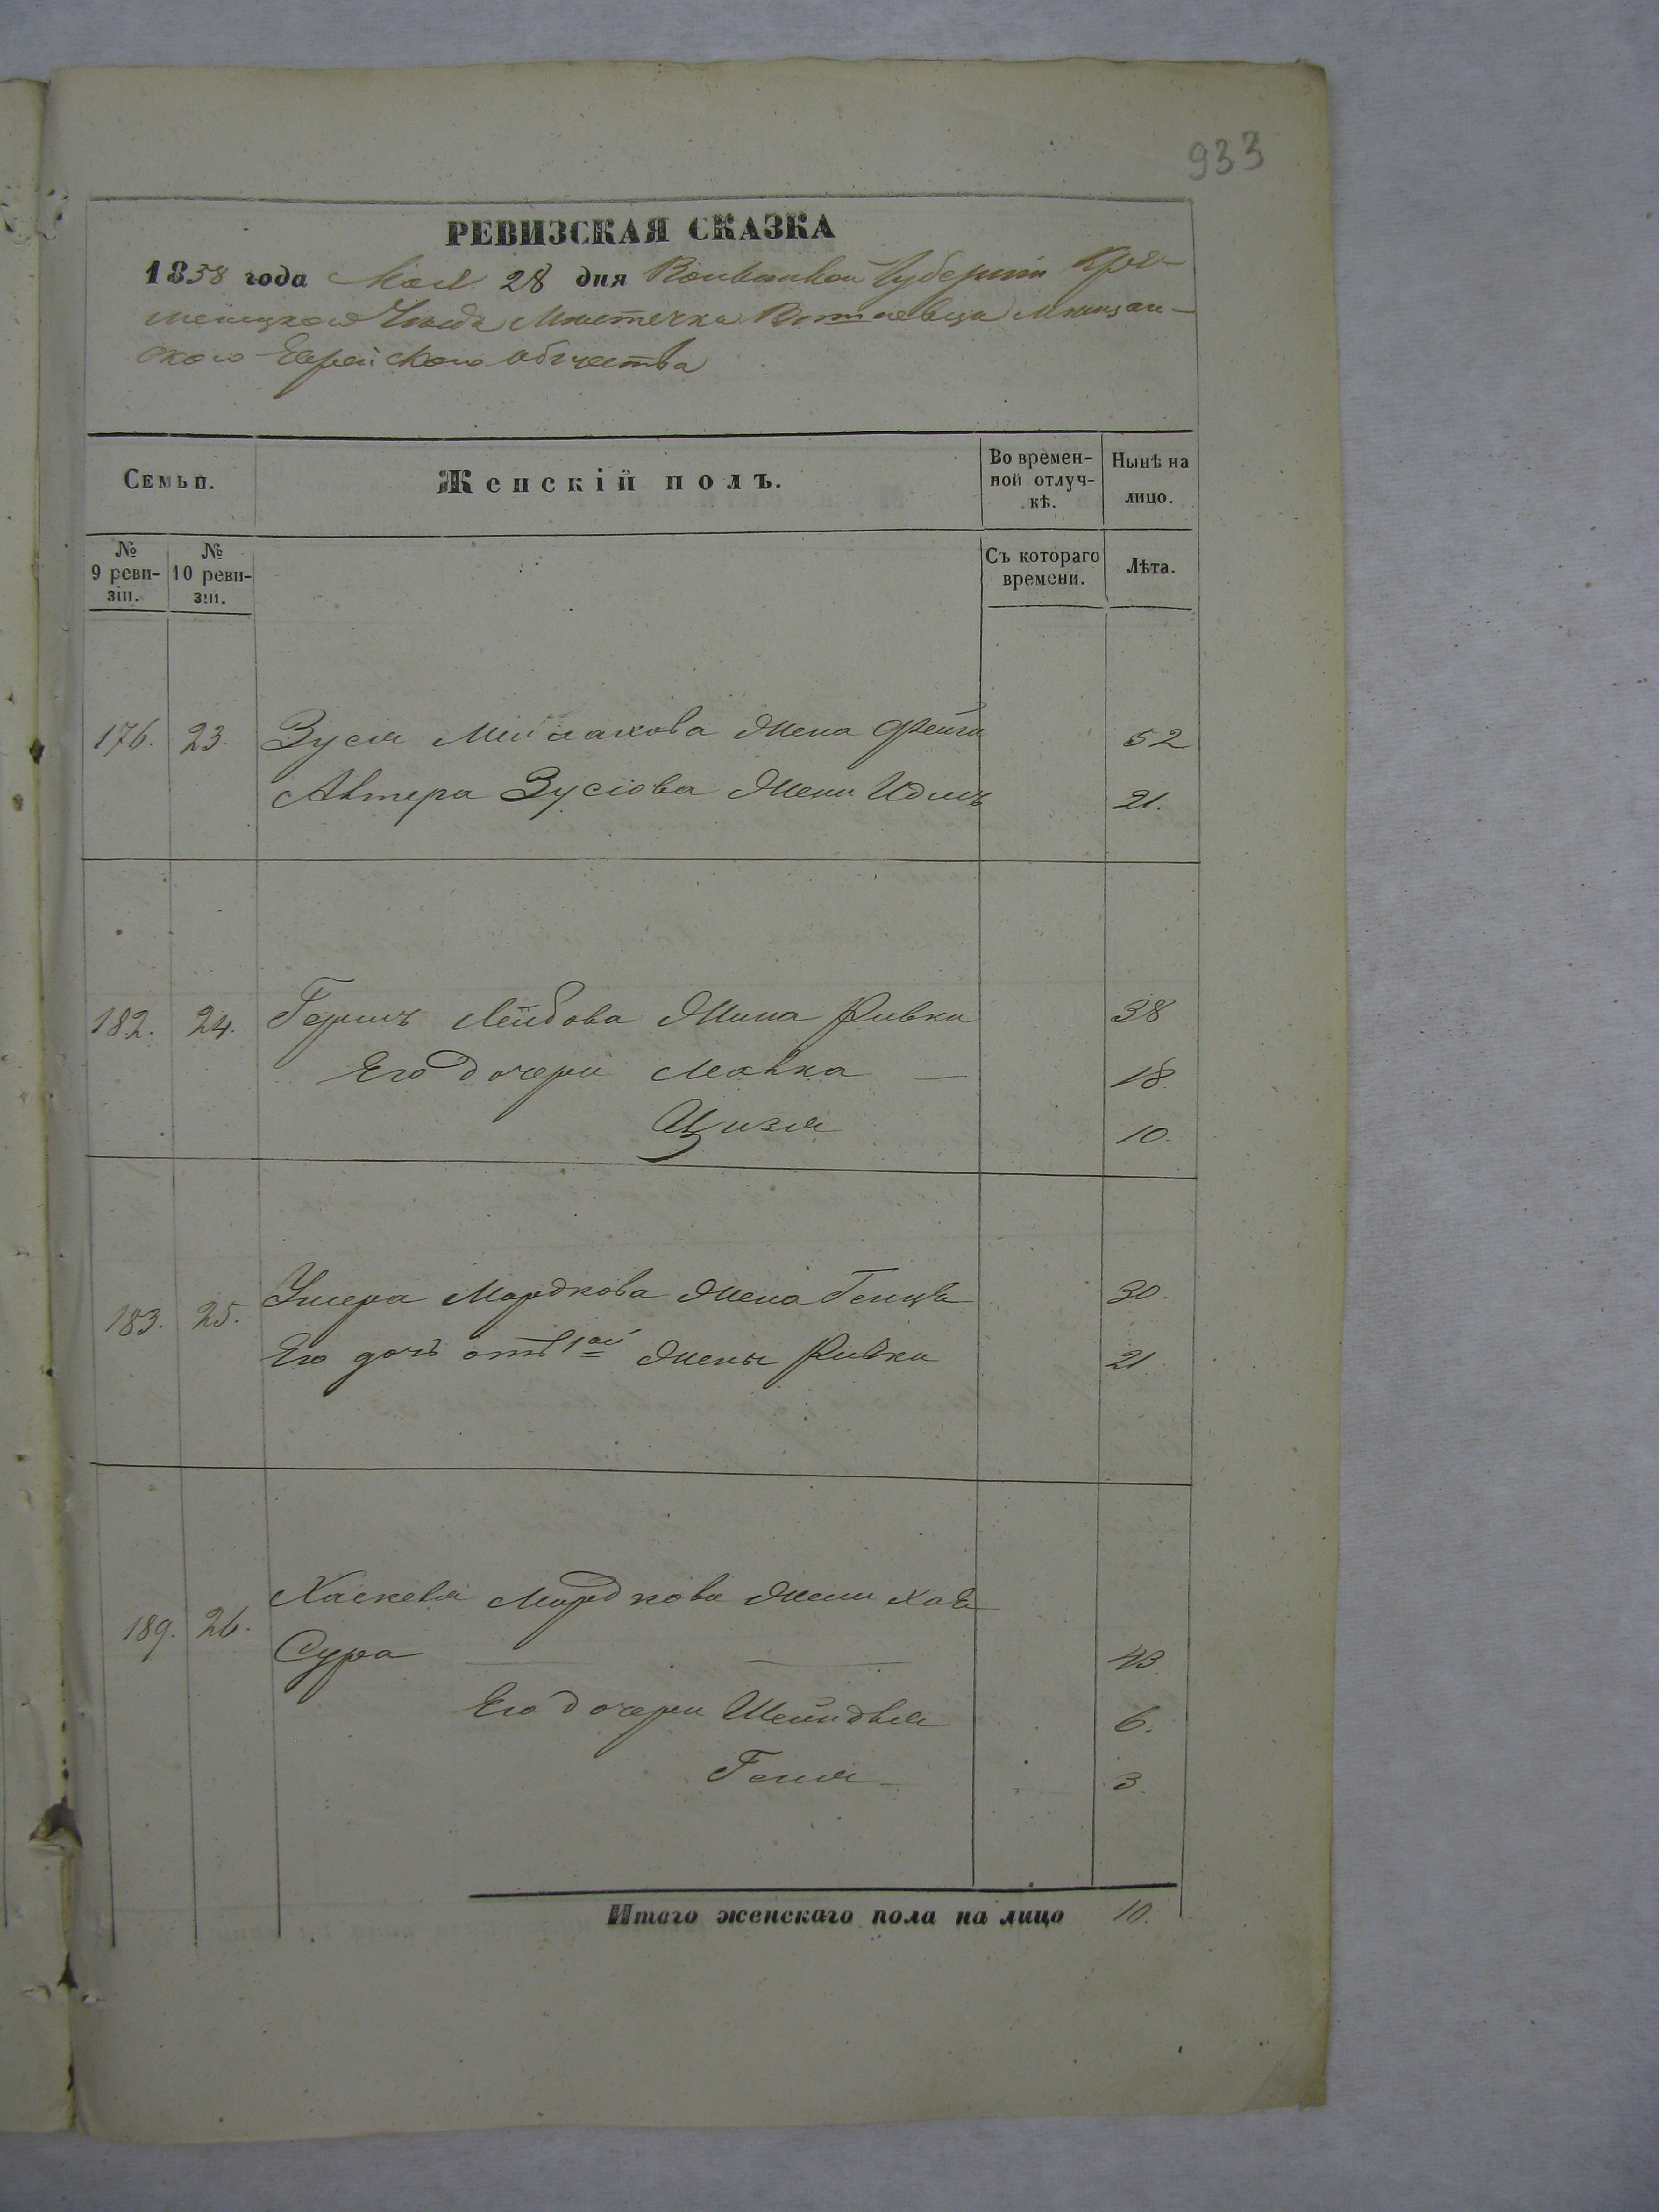 933
РЕВИЗСКАЯ СКАЗКА
1858 года Мая 28 дня Волынской Губернiи Кре-
менецкого Уезда Местечка Вышневца Мещан-
ского Еврейского общества
Семьи. Женскiй полъ. Во времен-ной отлуч-кѣ. Нынѣ на лицо.
№ 9 реви-зiи. № 10 реви-зiи. Съ котораго времени. Лѣта.
176. 23. Зуся Мейлахова жена Фейга 52
Алтера Зусiова жена Идысъ 21.
182. 24. Гершъ Лейбова жена Ривка 38
Его дочери Малка — 18.
Цизя 10.
183. 25. Умера Мордкова жена Генця 30.
Его дочь отъ 1ой жены Ривка 21.
189. 26. Хаскеля Мордкова жена Хая
Сура 43
Его дочери Шейндля 6.
Геня 3.
Итого женскаго пола на лицо 10.